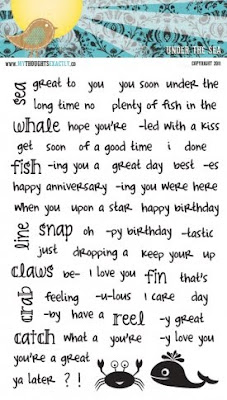 UNDER THE SEA
WWW.MYTHOUGHTSEXACTLY.CA
COPYRIGHT 2011
sea great to you you soon under the
long time no plenty of fish in the
whale hope you're -led with a kiss
get soon of a good time i done
fish -ing you a great day best -es
happy anniversary -ing you were here
when you upon a star happy birthday
line snap oh -py birthday -tastic
just dropping a keep your up
claws be- I love you fin that's
crab feeling -u-lous I care day
-by have a reel -y great
catch what a you're -y love you
you're a great
ya later ? !